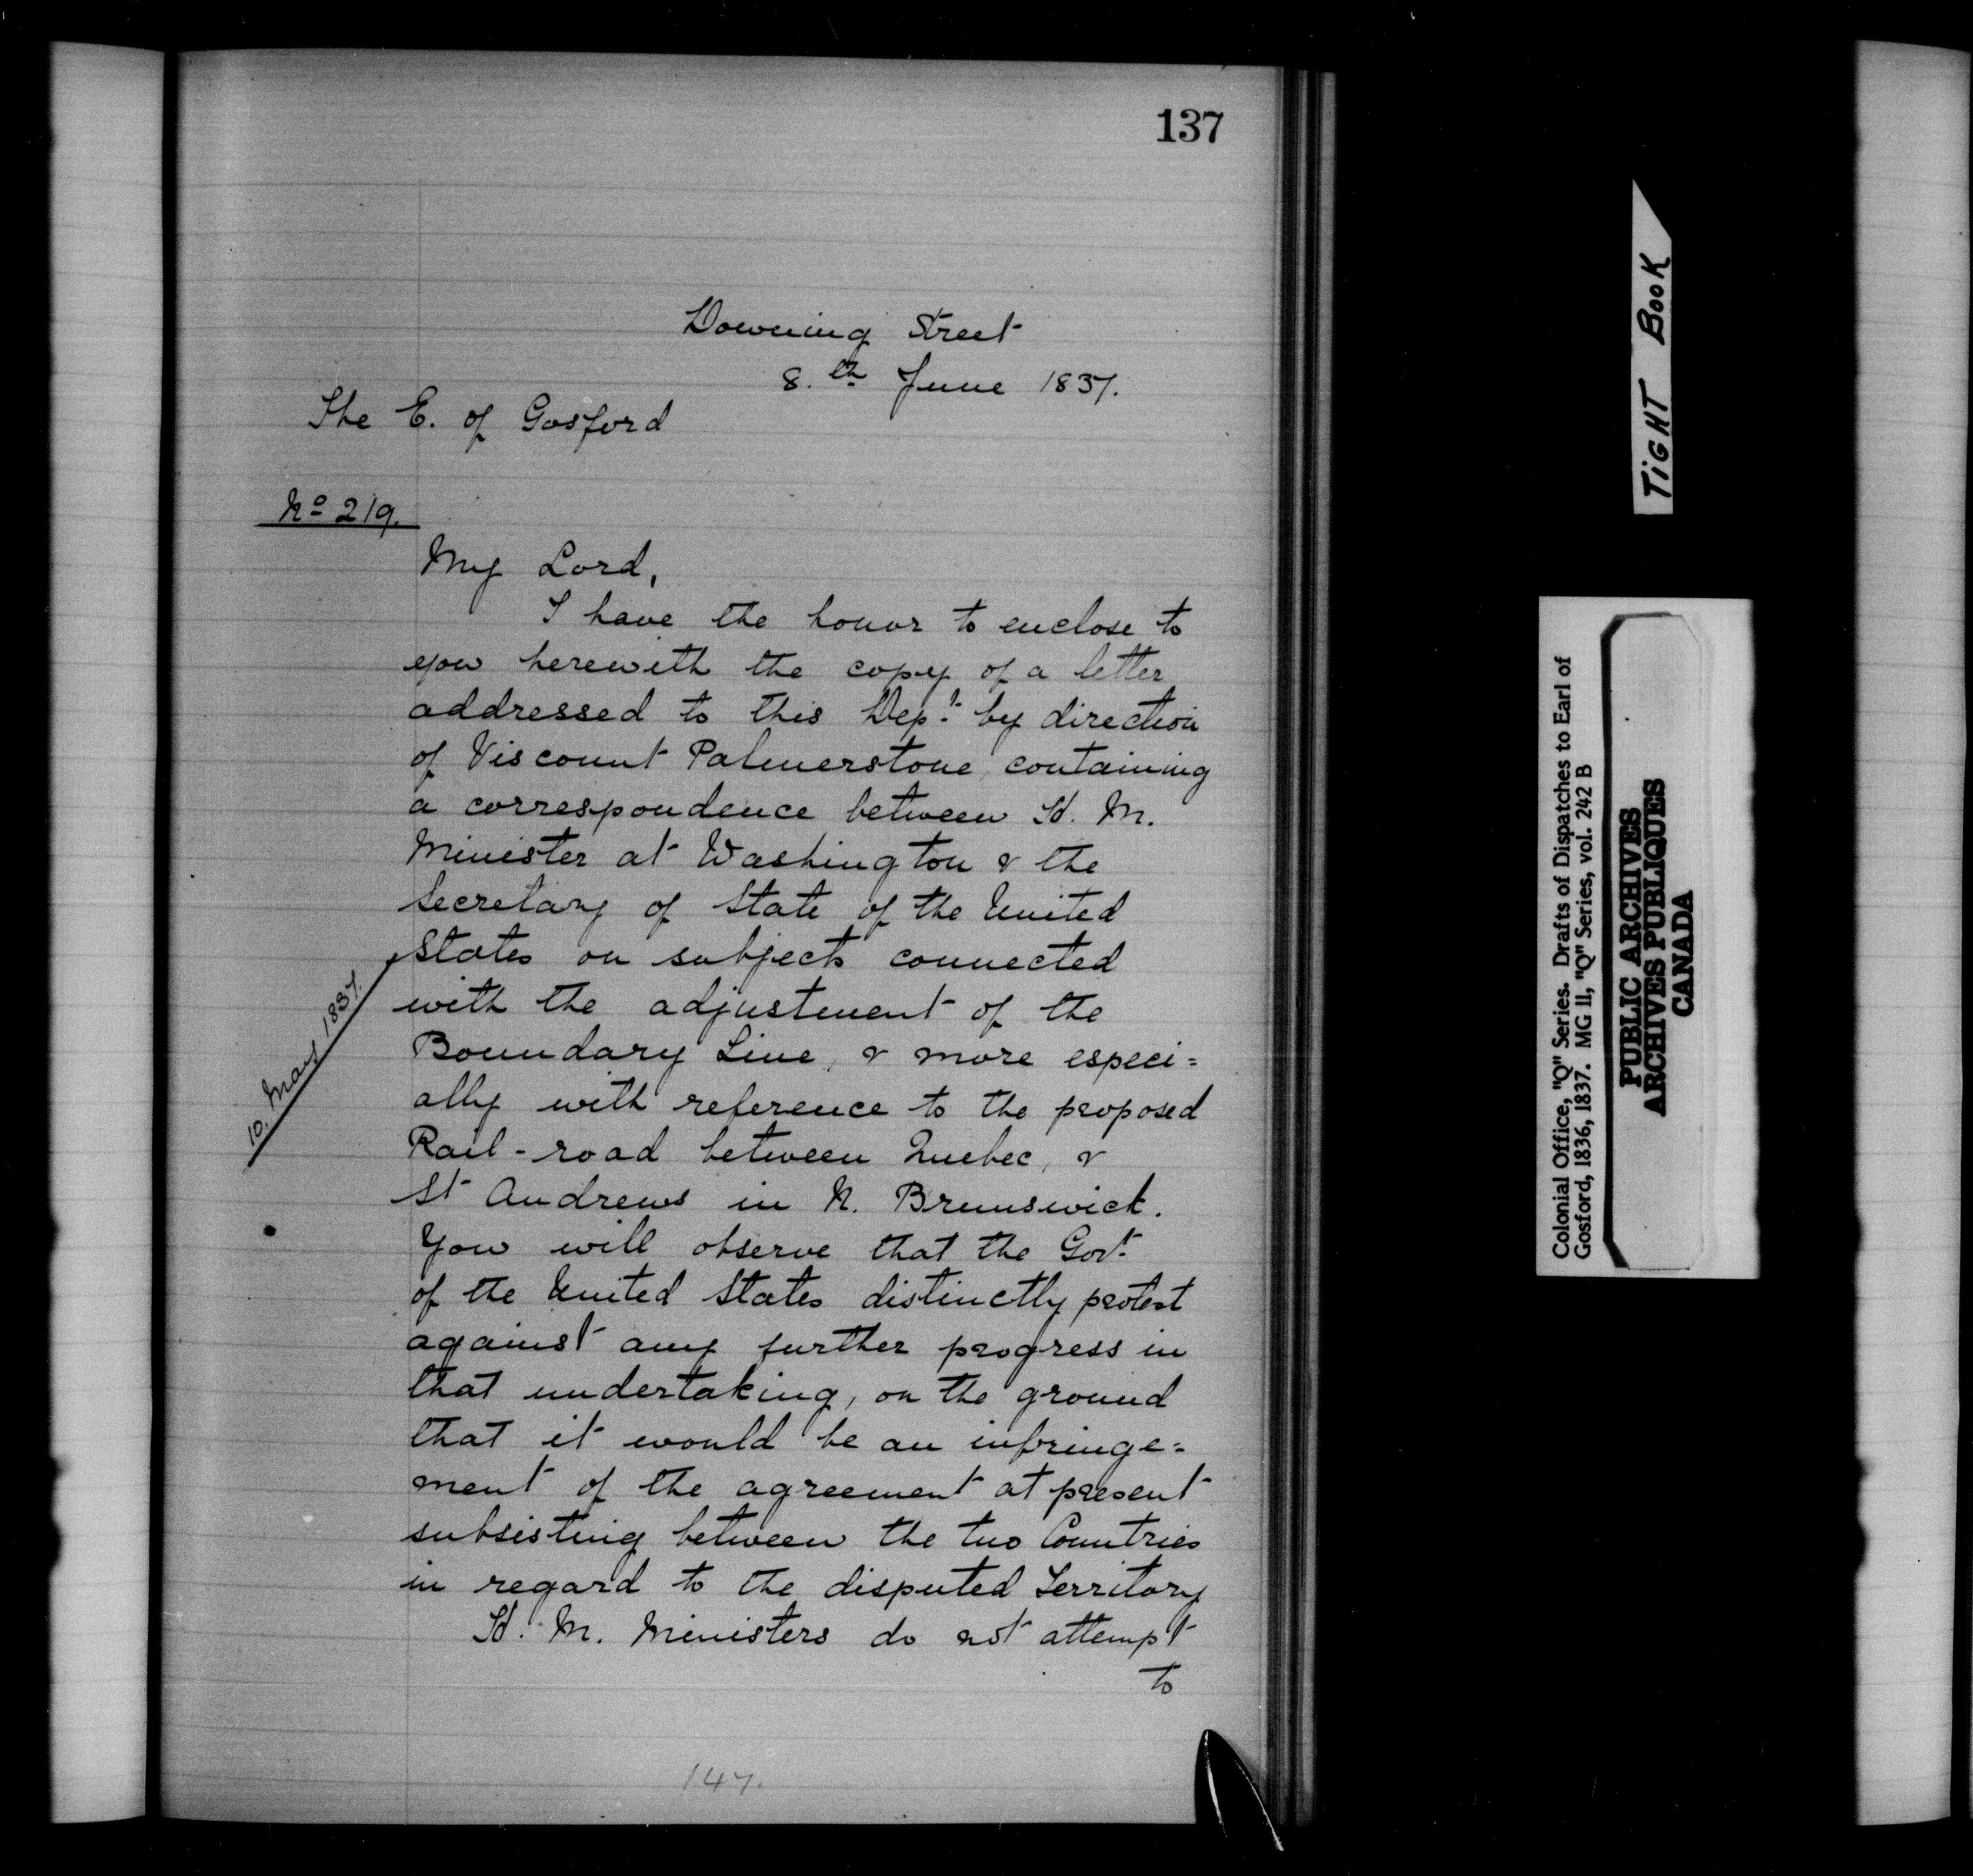 137
Downing Street
8.th June 1837.
The E. of Gosford
No 219.
My Lord,
I have the honor to enclose to
you herewith the copy of a letter
addressed to this Dept. by direction
of Viscount Palmerstone, containing
a correspondence between H. M.
Minister at Washington & the
Secretary of State of the United
States on subjects connected
with the adjustement of the
Boundary Line, & more especi=
ally with reference to the proposed
Rail-road between Quebec, &
St Andrews in N. Brunswick.
You will observe that the Govt.
of the United States distinctly protest
against any further progress in
that undertaking, on the ground
that it would be an infringe=
ment of the agreement at present
subsisting between the two Countries
in regard to the disputed Territory
H. M. Ministers do not attempt
to
10. May 1837.
147.
TIGHT BOOK
Colonial Office, "Q" Series. Drafts of Dispatches to Earl of
Gosford, 1836, 1837. MG 11, "Q" Series, vol. 242 B
PUBLIC ARCHIVES
ARCHIVES PUBLIQUES
CANADA